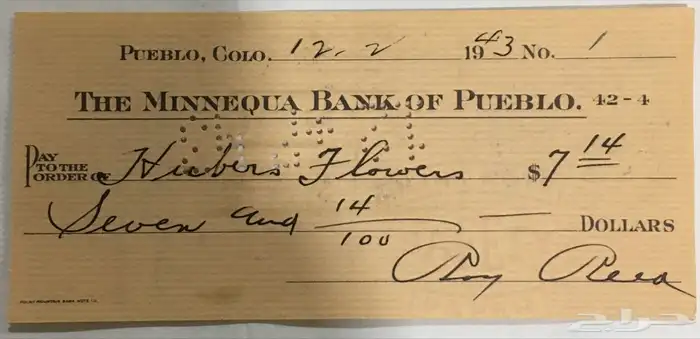 PUEBLO, COLO. 12-2 1943 No. 1
THE MINNEQUA BANK OF PUEBLO. 42-4
PAY TO THE ORDER OF Hubers Flowers $7 14
Seven and 14/100 — DOLLARS
Roy Reed
حراج